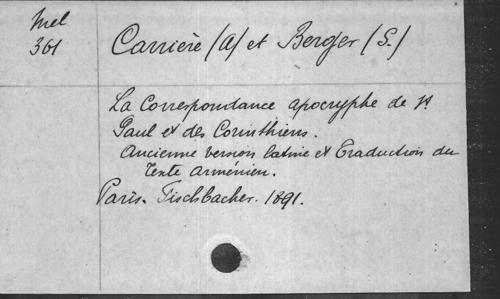 Mel
361
Carrière (A) et Berger (S.)
La Correspondance apocryphe de St
Paul et des Corinthiens.
Ancienne version latine et Traduction du
Texte arménien.
Paris. Fischbacher. 1891.